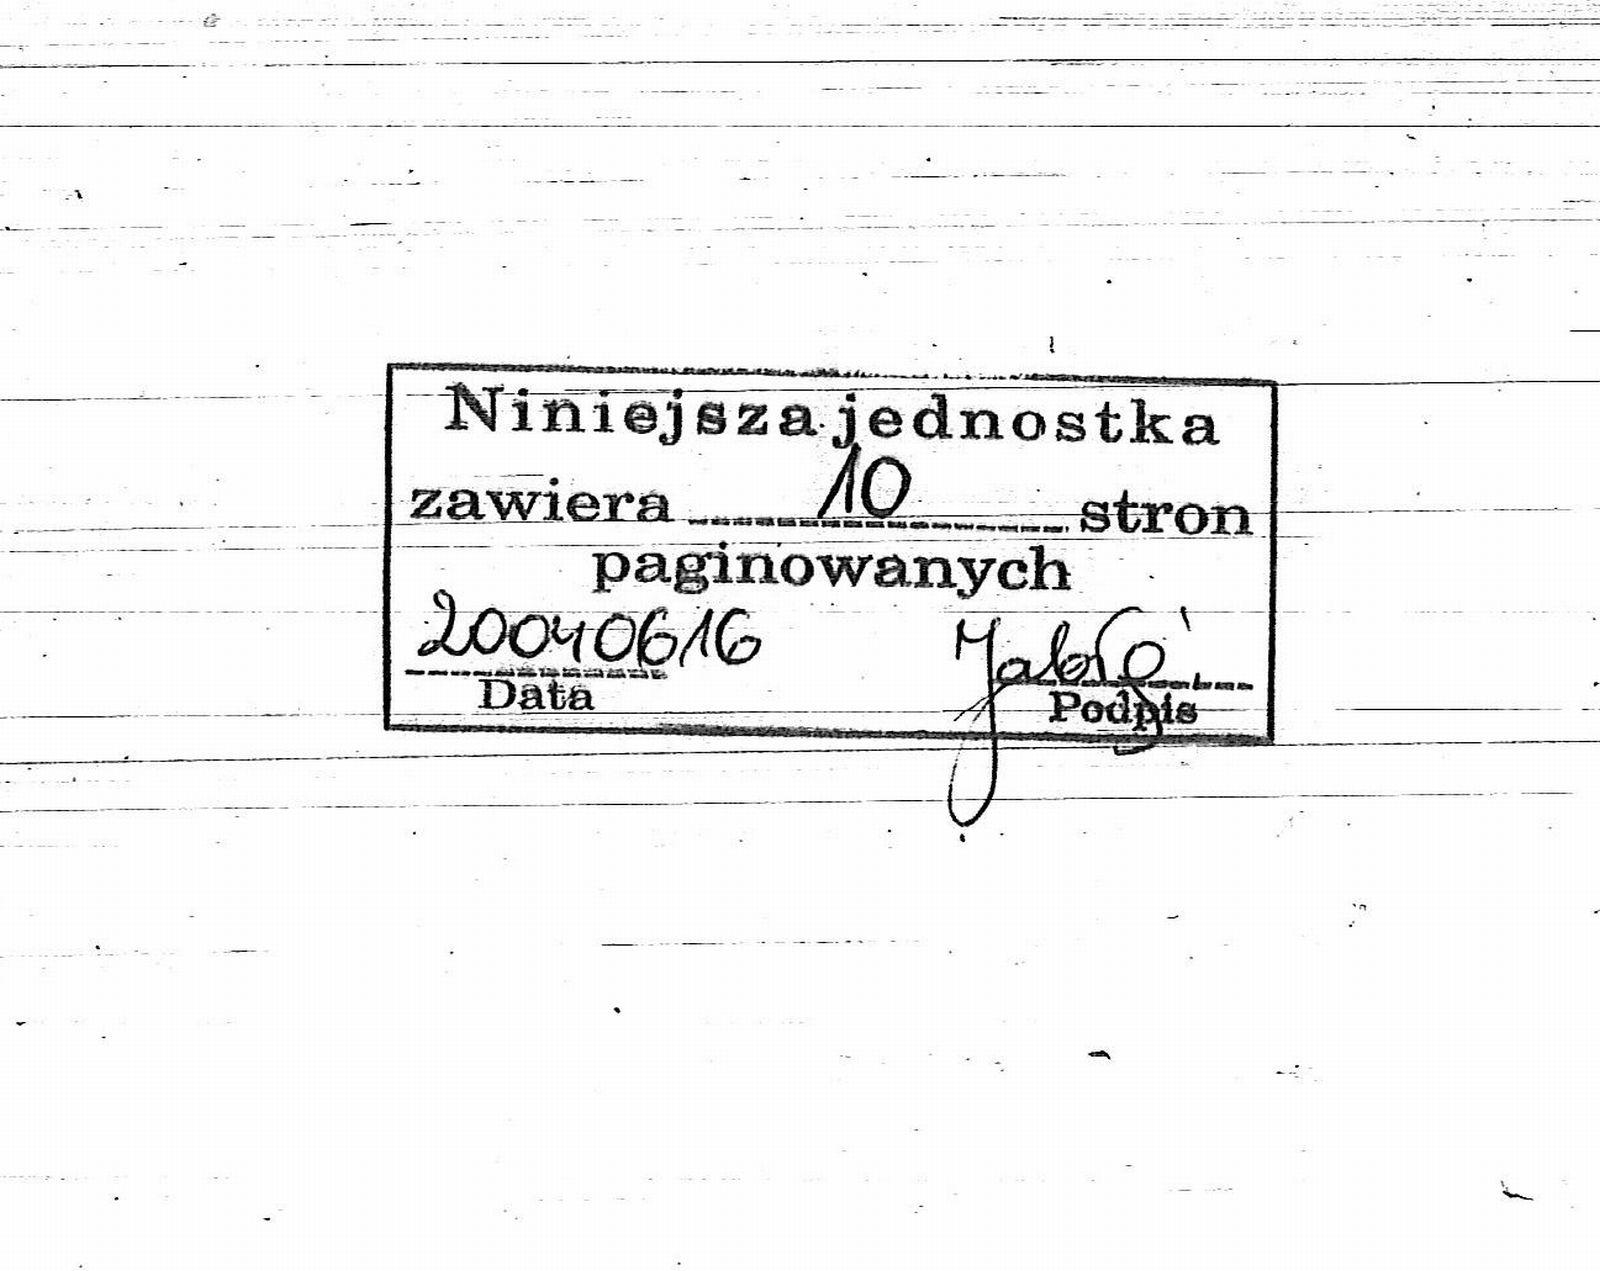 Niniejsza jednostka
zawiera 10 stron
paginowanych
20040616
Data Podpis